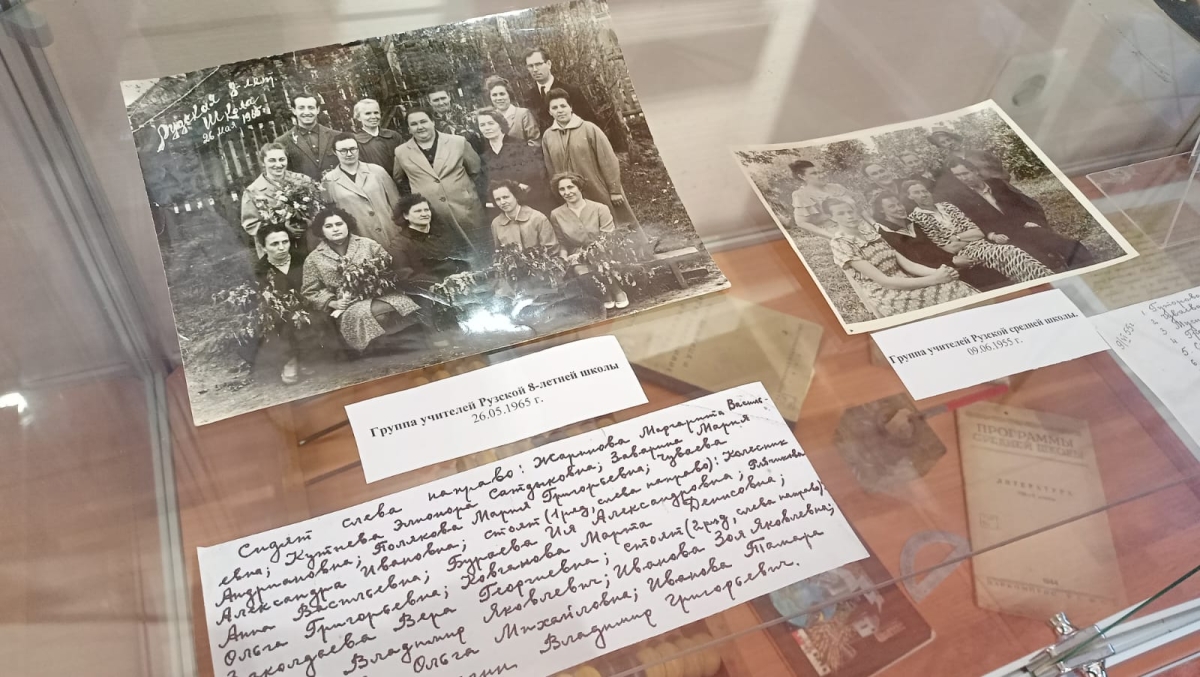 Рузская 8 лет.
школа
26 мая 1965 г.
Группа учителей Рузской 8-летней школы
26.05.1965 г.
Группа учителей Рузской средней школы.
09.06.1955 г.
Сидят слева направо: Жаринова Маргарита Василь-
евна; Кутнева Элионора Сатдыковна; Заварина Мария
Андриановна; Полякова Мария Григорьевна; Чуваева
Александра Ивановна; стоят (1 ряд, слева направо): Колесник
Анна Васильевна; Бураева Ия Александровна;
Ольга Григорьевна; Ковганова Марта Денисовна;
Заколдаева Вера Георгиевна; стоят (2 ряд, слева направо):
Владимир Яковлевич; Иванова Зоя Яковлевна;
Ольга Михайловна; Иванова Тамара
Владимир Григорьевич.
ПРОГРАММЫ
СРЕДНЕЙ ШКОЛЫ
ЛИТЕРАТУРА